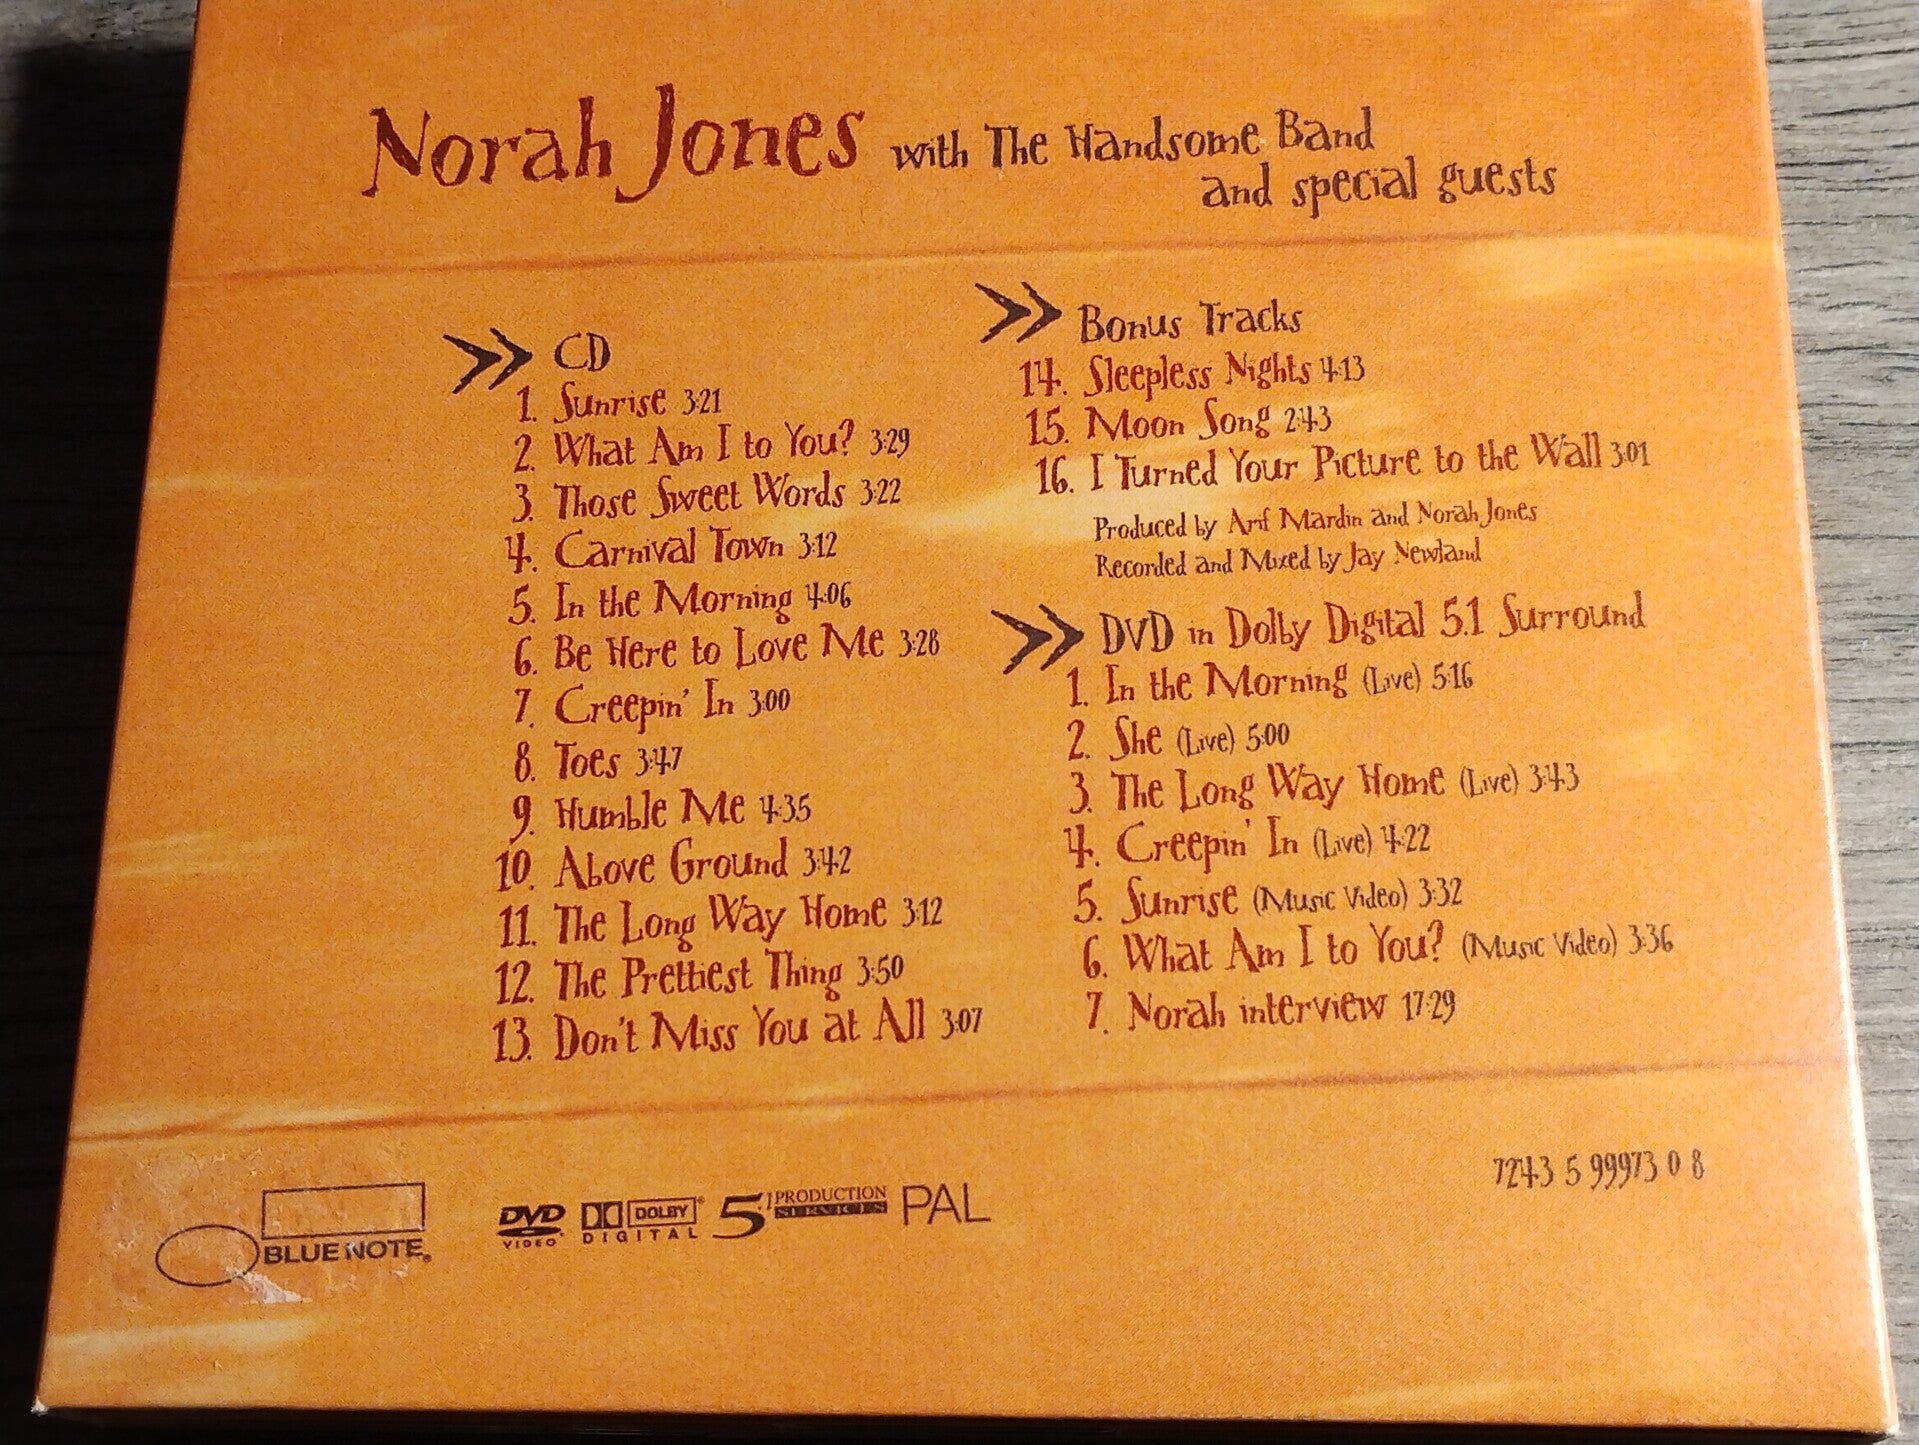 Norah Jones with The Handsome Band
and special guests
CD
1. Sunrise 3:21
2. What Am I to You? 3:29
3. Those Sweet Words 3:22
4. Carnival Town 3:12
5. In the Morning 4:06
6. Be Here to Love Me 3:28
7. Creepin' In 3:00
8. Toes 3:47
9. Humble Me 4:35
10. Above Ground 3:42
11. The Long Way Home 3:12
12. The Prettiest Thing 3:50
13. Don't Miss You at All 3:07
Bonus Tracks
14. Sleepless Nights 4:13
15. Moon Song 2:43
16. I Turned Your Picture to the Wall 3:01
Produced by Arif Mardin and Norah Jones
Recorded and Mixed by Jay Newland
DVD in Dolby Digital 5.1 Surround
1. In the Morning (Live) 5:16
2. She (Live) 5:00
3. The Long Way Home (Live) 3:43
4. Creepin' In (Live) 4:22
5. Sunrise (Music Video) 3:32
6. What Am I to You? (Music Video) 3:36
7. Norah interview 17:29
7243 5 99973 0 8
BLUE NOTE®
DVD VIDEO
DOLBY® DIGITAL
5.1 PRODUCTION SERVICES
PAL